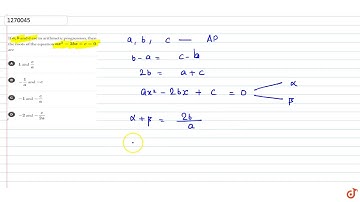 1270045
If a, b and c are in arithmetic progression, then
the roots of the equation ax² − 2bx + c = 0
are
A 1 and c/a
B −1/a and −c
C −1 and −c/a
D −2 and −c/2a
a, b, c — AP
b - a = c - b
2b = a + c
ax² - 2bx + c = 0
α
β
α + β = 2b/a